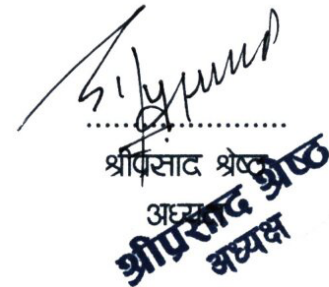 ....................................
श्रीप्रसाद श्रेष्ठ
अध्यक्ष
श्रीप्रसाद श्रेष्ठ
अध्यक्ष